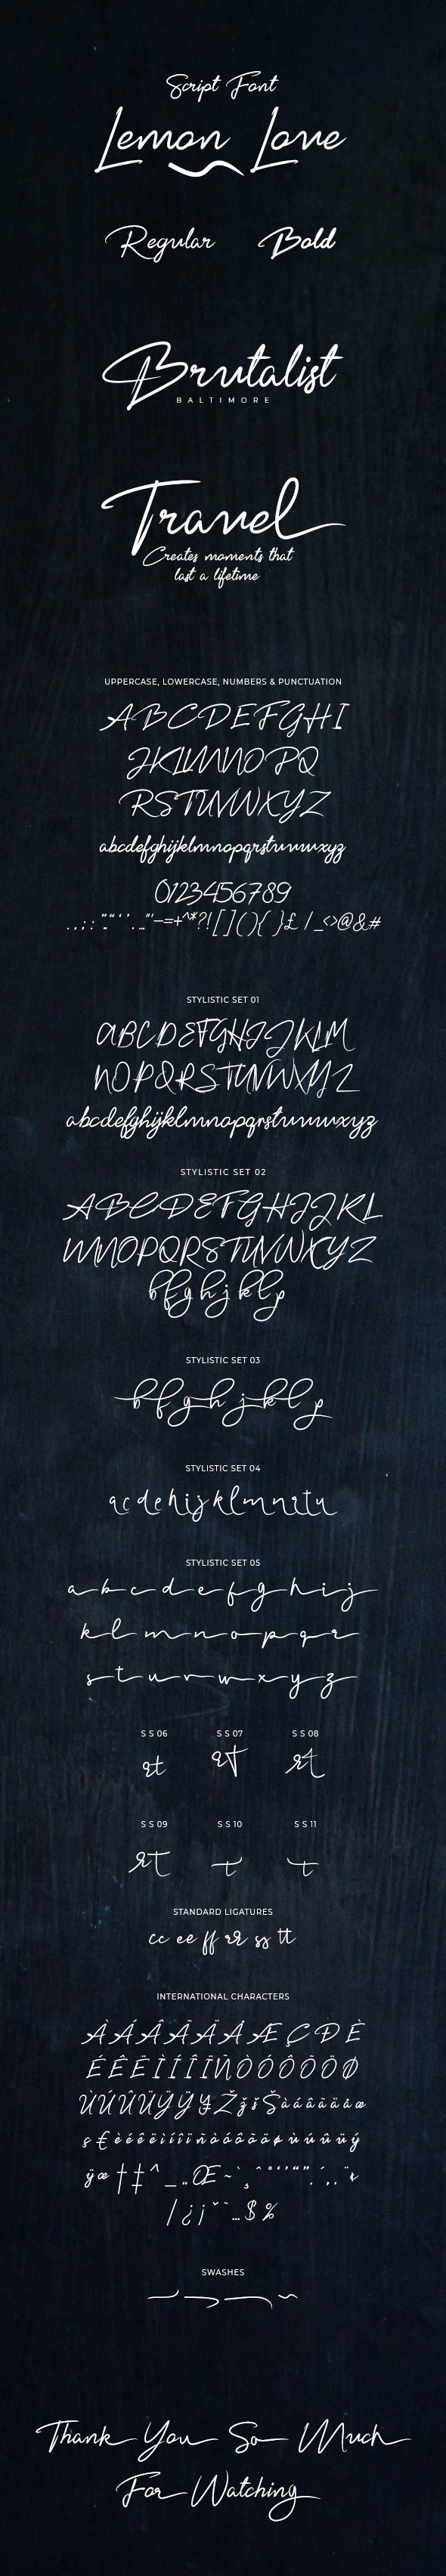 Script Font
Lemon Love
Regular Bold
Brutalist
BALTIMORE
Travel
Creates moments that
last a lifetime
UPPERCASE, LOWERCASE, NUMBERS & PUNCTUATION
ABCDEFGHI
JKLMNOPQ
RSTUVWXYZ
abcdefghijklmnopqrstuvwxyz
0123456789
STYLISTIC SET 01
ABCDEFGHIJKLM
NOPQRSTUVWXYZ
abcdefghijklmnopqrstuvwxyz
STYLISTIC SET 02
ABCDEFGHIJKL
MNOPQRSTUVWXYZ
b f g h j k l p
STYLISTIC SET 03
b f g h j k l p
STYLISTIC SET 04
a c d e h i j k l m n r t u
STYLISTIC SET 05
a b c d e f g h i j
k l m n o p q r
s t u v w x y z
SS06 SS07 SS08
rt rt rt
SS09 SS10 SS11
rt t t
STANDARD LIGATURES
cc ee ff rr ss tt
INTERNATIONAL CHARACTERS
À Á Â Ã Ä Å Æ Ç Ð È
É Ê Ë Ì Í Î Ï Ñ Ò Ó Ô Õ Ö Ø
SWASHES
Thank You So Much
For Watching